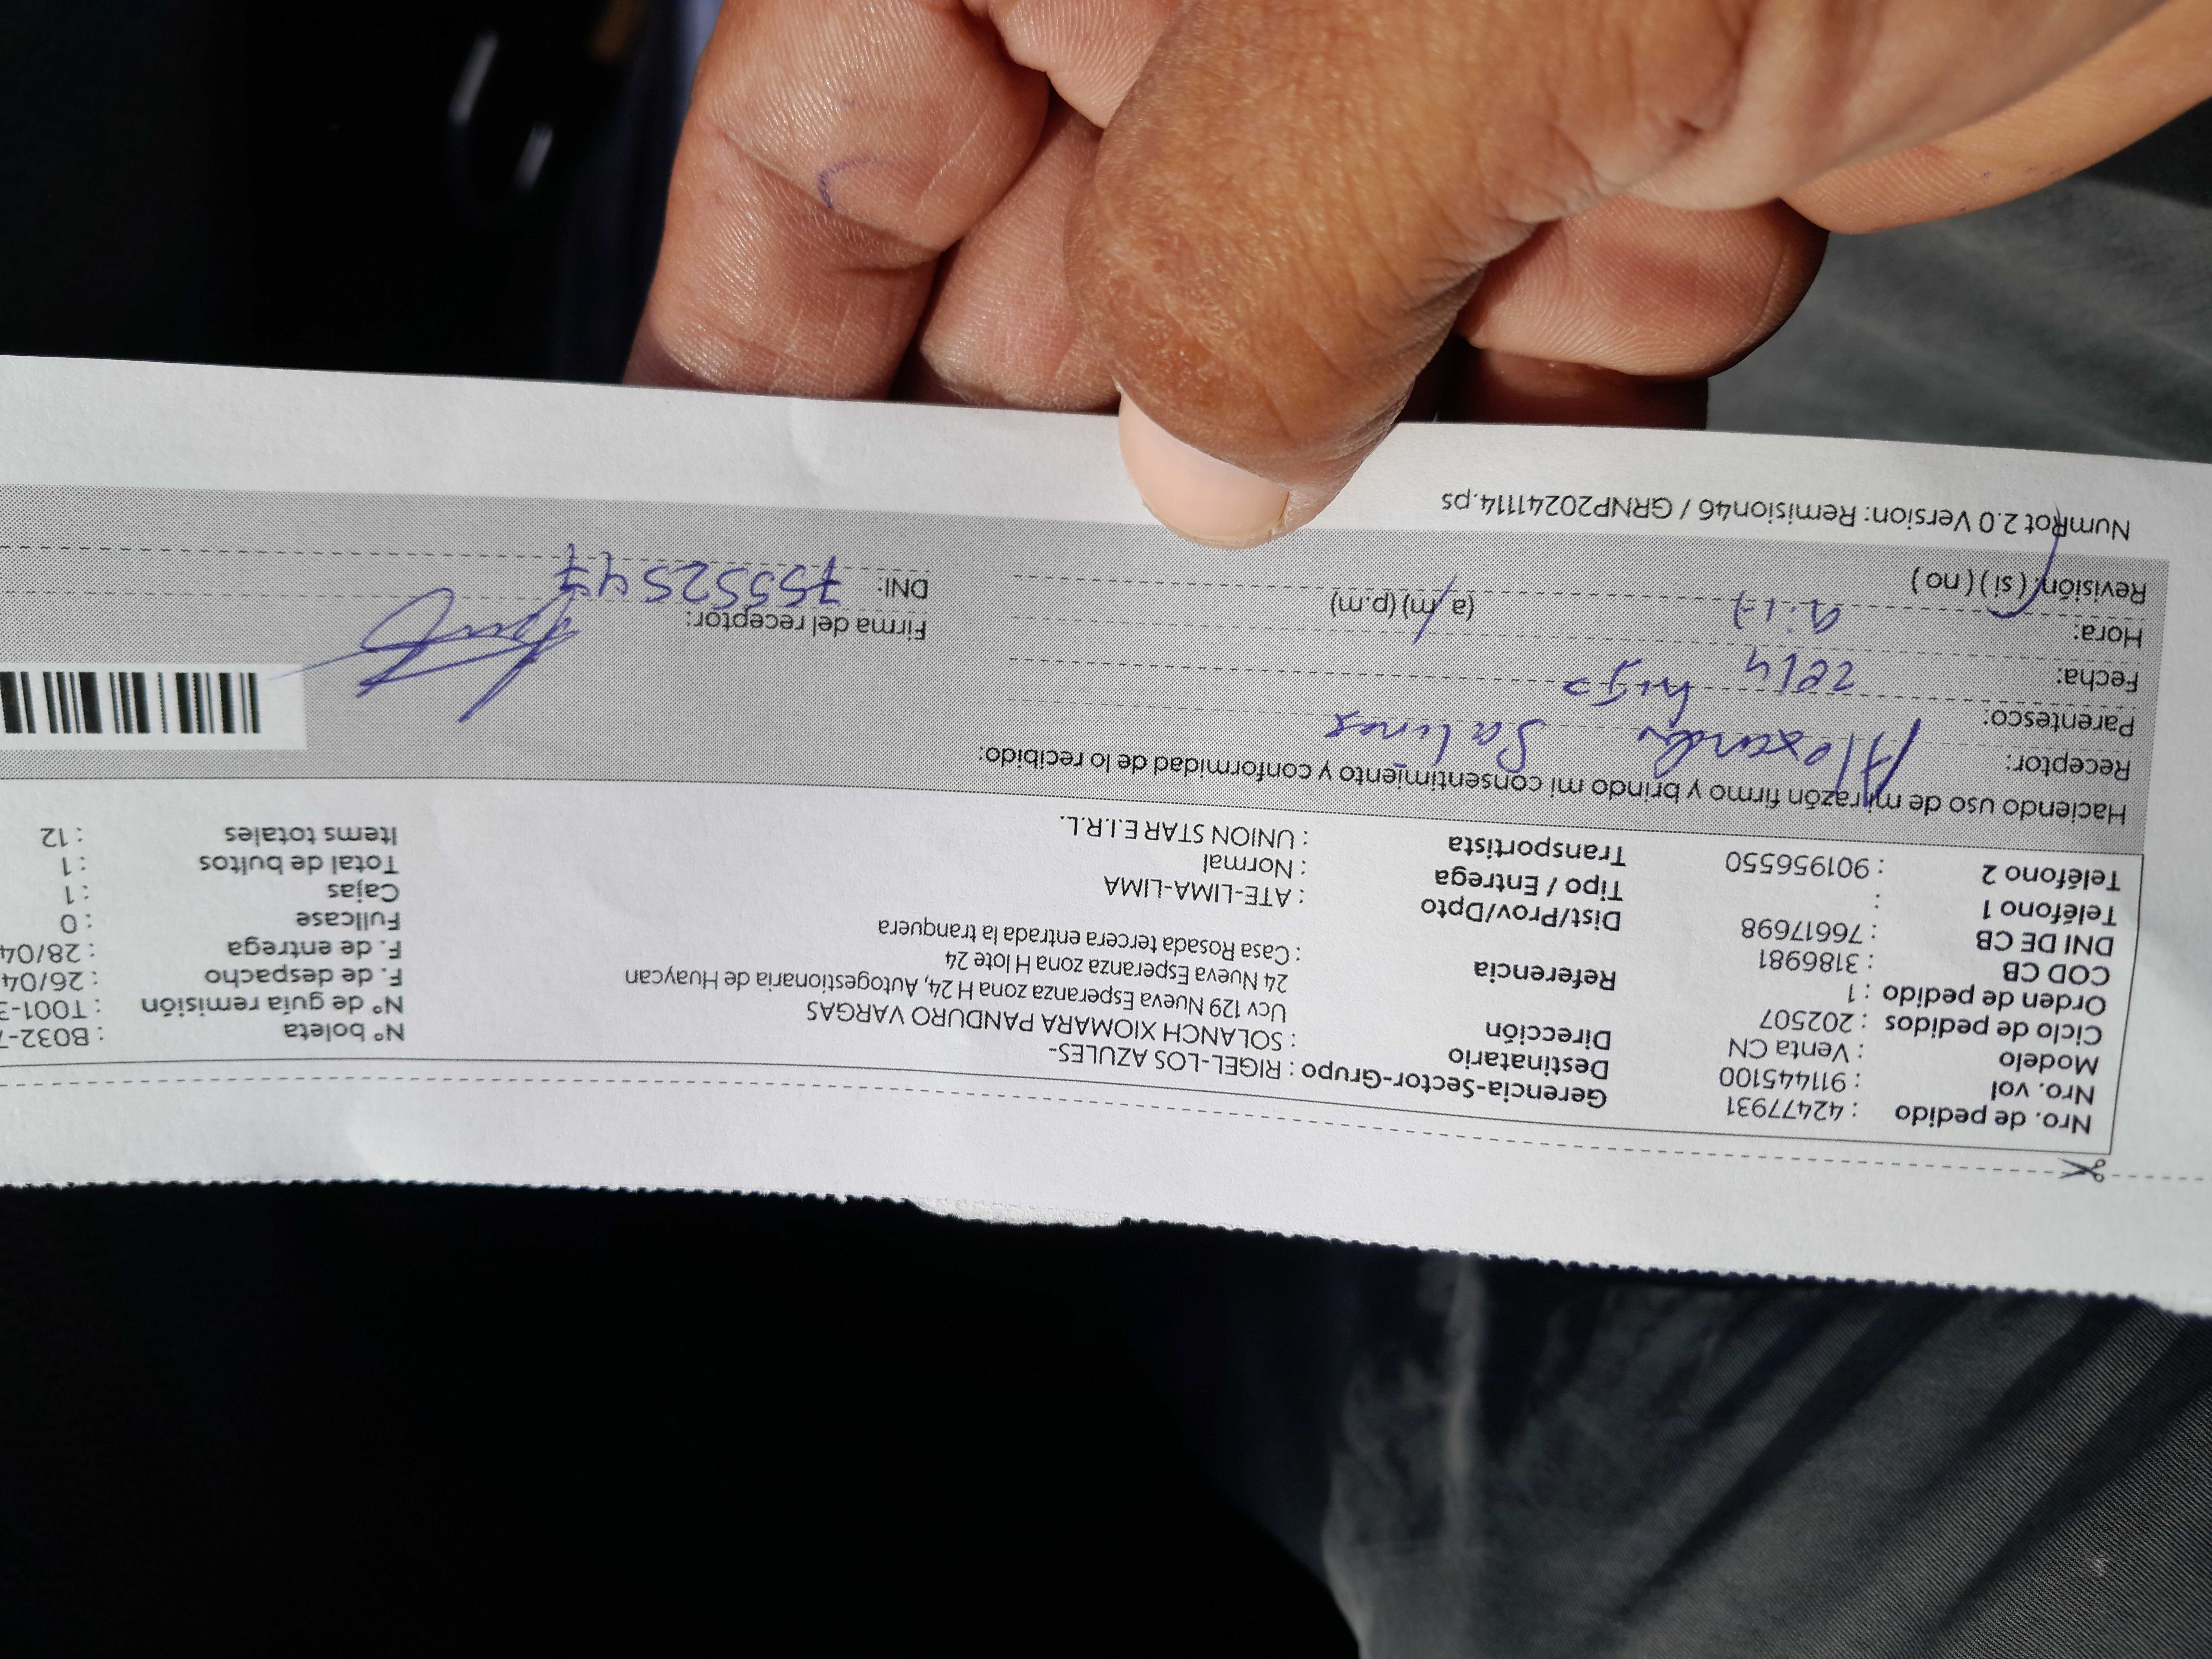 Nro. de pedido : 42477931
Nro. vol : 911445100
Modelo : Venta CN
Ciclo de pedidos : 202507
Orden de pedido : 1
COD CB : 3186981
DNI DE CB : 76617698
Teléfono 1 :
Teléfono 2 : 901956550
Gerencia-Sector-Grupo : RIGEL-LOS AZULES-
Destinatario : SOLANCH XIOMARA PANDURO VARGAS
Dirección Ucv 129 Nueva Esperanza zona H 24, Autogestionaria de Huaycan
24 Nueva Esperanza zona H lote 24
Referencia : Casa Rosada tercera entrada la tranquera
Dist/Prov/Dpto : ATE-LIMA-LIMA
Tipo / Entrega : Normal
Transportista : UNION STAR E.I.R.L.
N° boleta : B032-
N° de guía remisión : T001-3
F. de despacho : 26/04
F. de entrega : 28/04
Fullcase : 0
Cajas : 1
Total de bultos : 1
Items totales : 12
Haciendo uso de mi razón firmo y brindo mi consentimiento y conformidad de lo recibido:
Receptor: Salinas
Parentesco: hijo
Fecha:
Hora: (a.m) (p.m)
Revisión: (si) (no)
Firma del receptor:
DNI: 75552547
NumRot 2.0 Version: Remision46 / GRNP20241114.ps